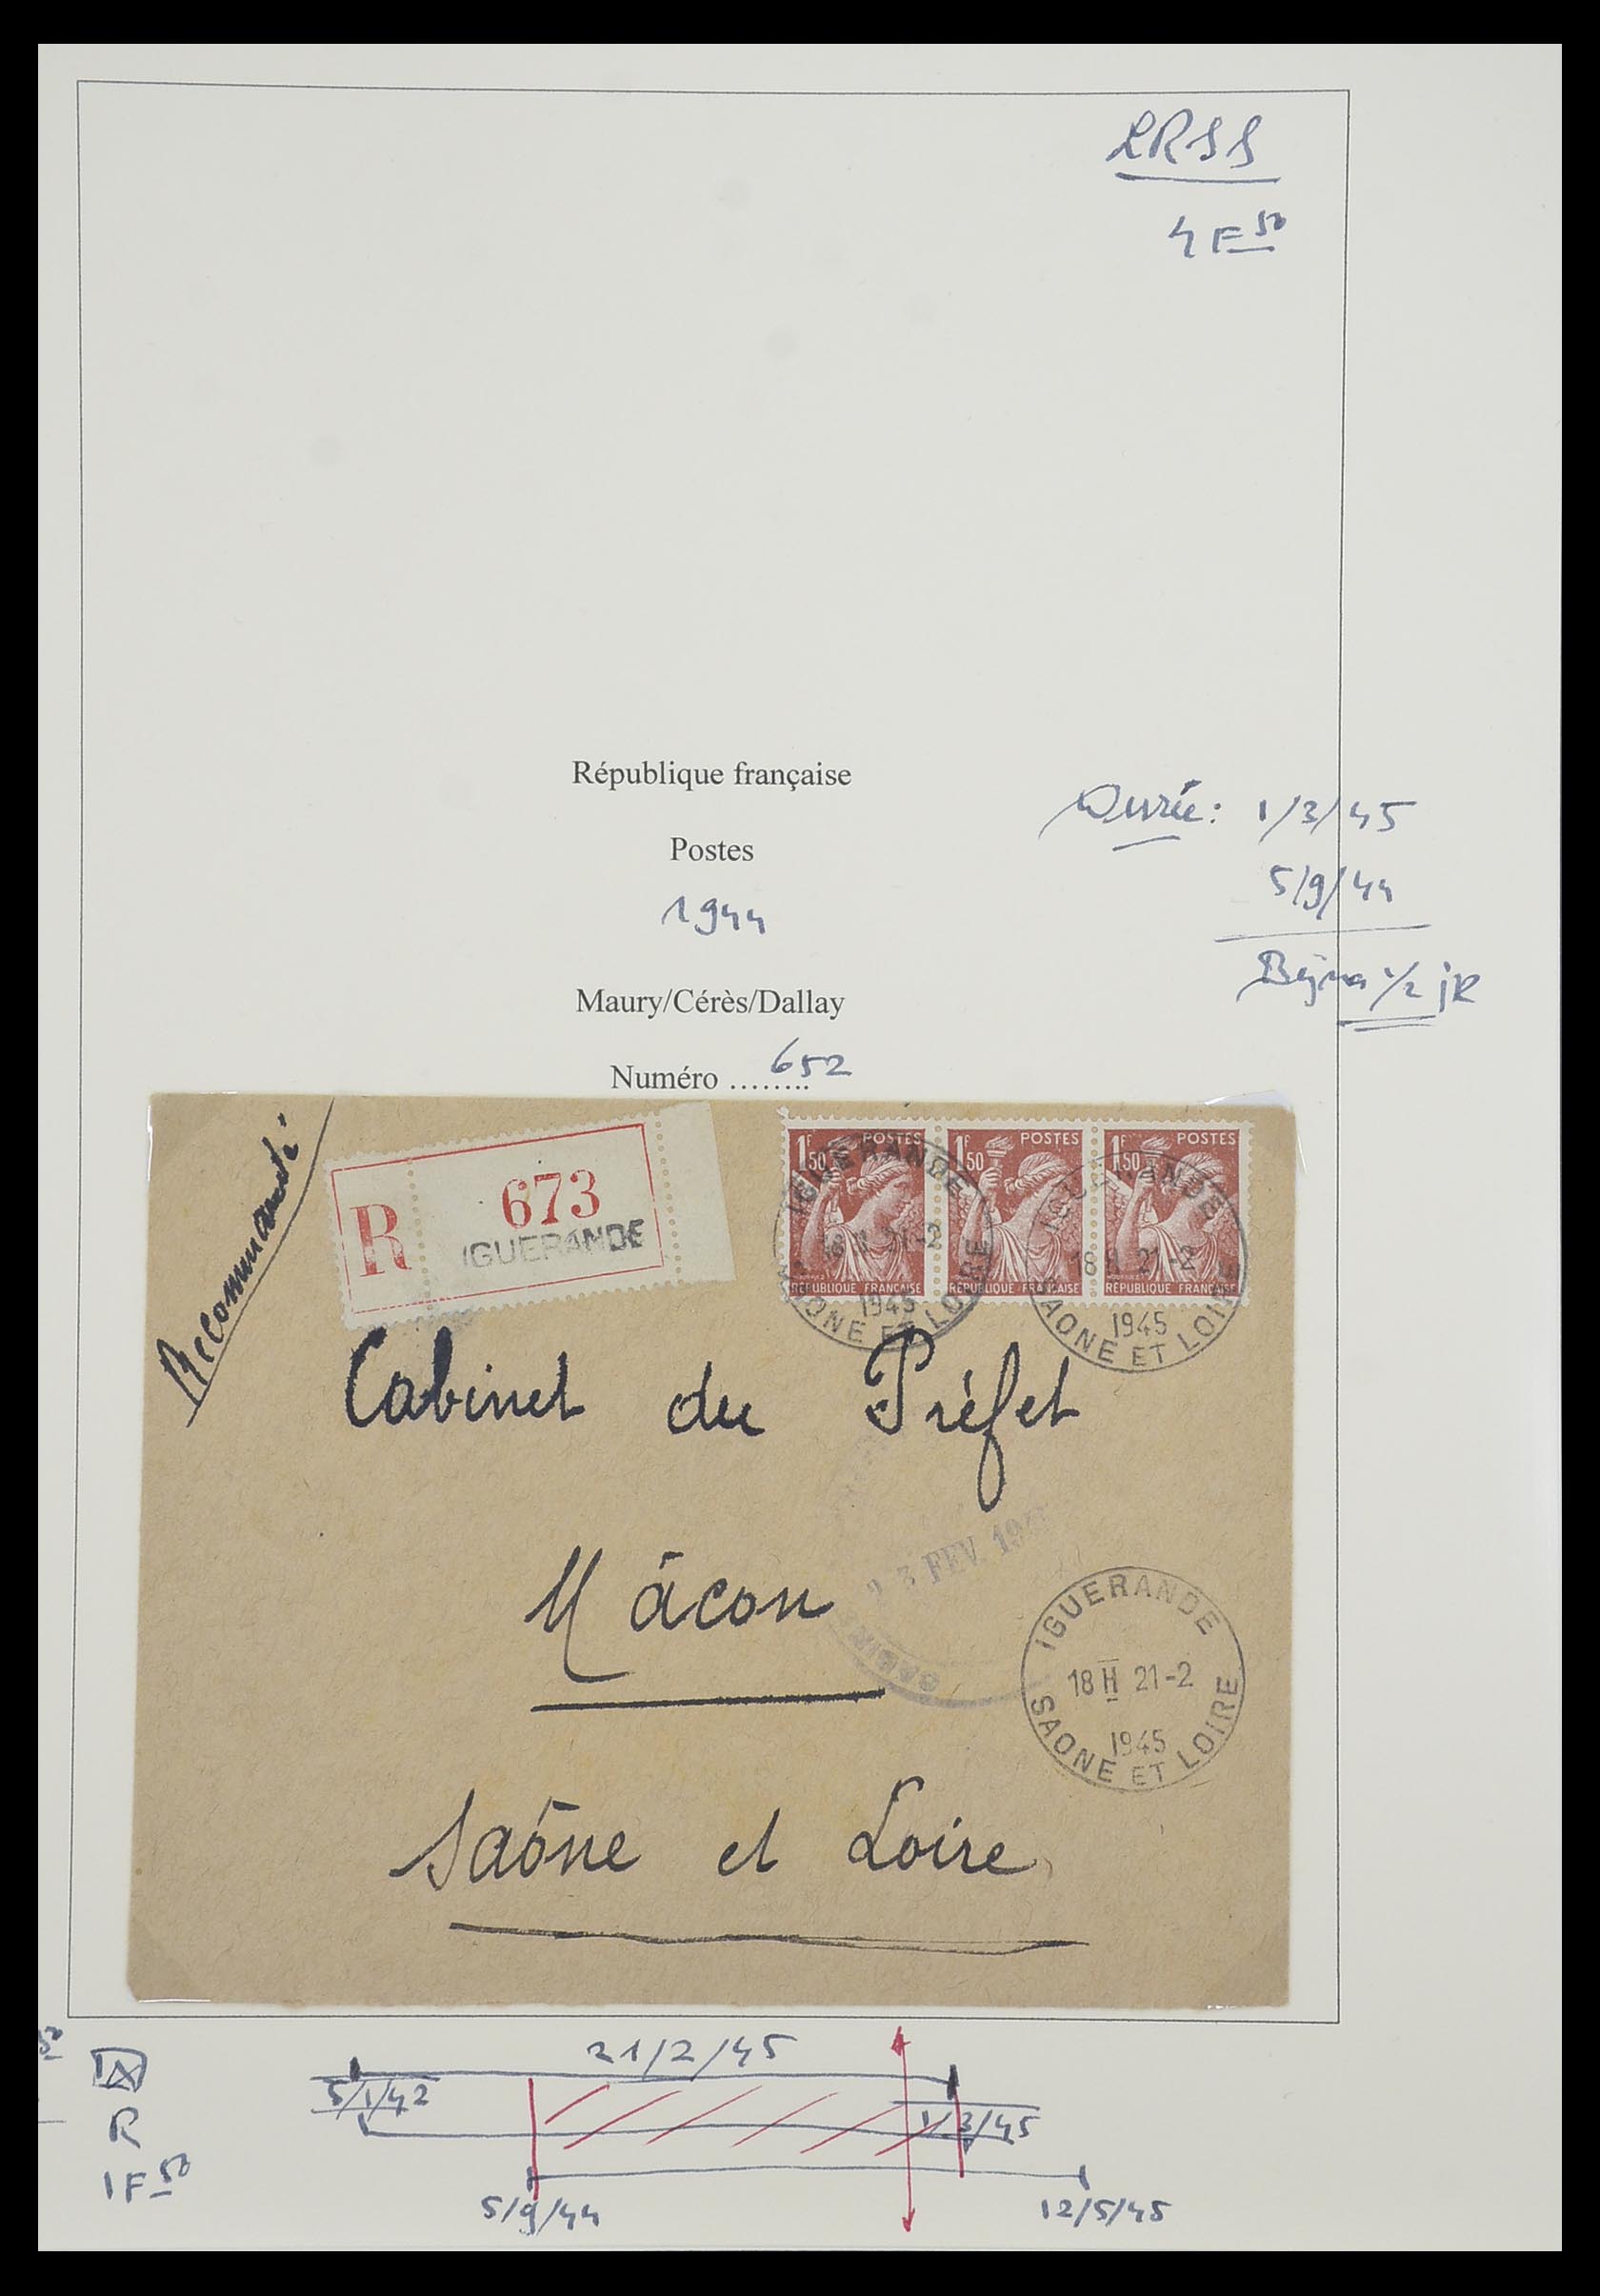 RRSS
4F50
République française
Postes
1944
Maury/Cérès/Dallay
Numéro ........ 652
Durée: 1/3/45
5/9/44
1/2
Recommandé
R
673
IGUERANDE
1F50 POSTES
RÉPUBLIQUE FRANÇAISE
1F50 POSTES
RÉPUBLIQUE FRANÇAISE
1F50 POSTES
RÉPUBLIQUE FRANÇAISE
IGUERANDE
21-2
1945
SAONE ET LOIRE
18H 21-2
1945
SAONE ET LOIRE
Cabinet du Préfet
23 FEV. 19
Mâcon
IGUERANDE
18H 21-2
1945
SAONE ET LOIRE
Saône et Loire
50
R
1F50
21/2/45
5/1/42
1/3/45
5/9/44
12/5/45